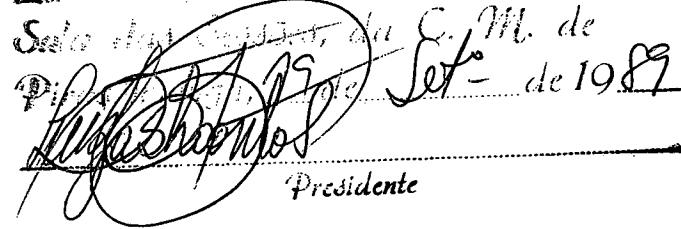 Sala das Sessões, da C. M. de
Pi 19 de Setº de 1989
Presidente